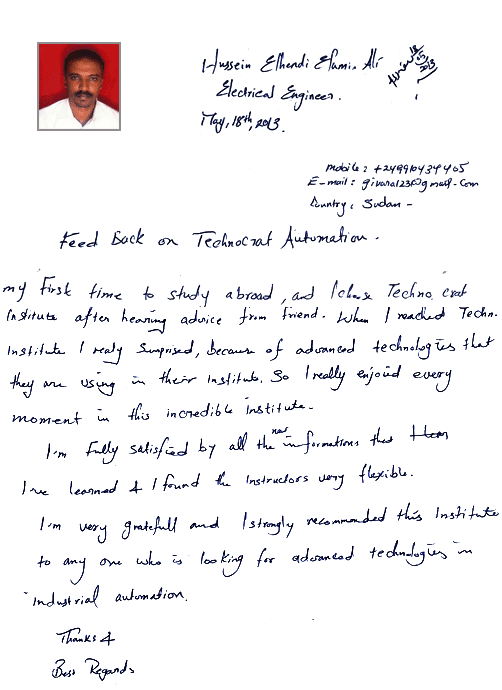 Hussein Elhendi Elamin Ali
Electrical Engineer.
May, 18th, 2013.
18
05
2013
mobile: +249910434405
E-mail: givara123@gmail-com
Country: Sudan -
Feed Back on Technocrat Automation.
my First time to study abroad, and I chose Techno crat
Institute after hearing advice from friend. When I reached Techn.
Institute I realy surprised, because of advanced technologies that
they are using in their institute. So I really enjoid every
moment in this incredible institute-
I'm fully satisfied by all the new informations that
I've learned & I found the Instructors very flexible.
I'm very gratefull and I strongly recommended this Institute
to any one who is looking for advanced technologies in
industrial automation.
Thanks &
Best Regards